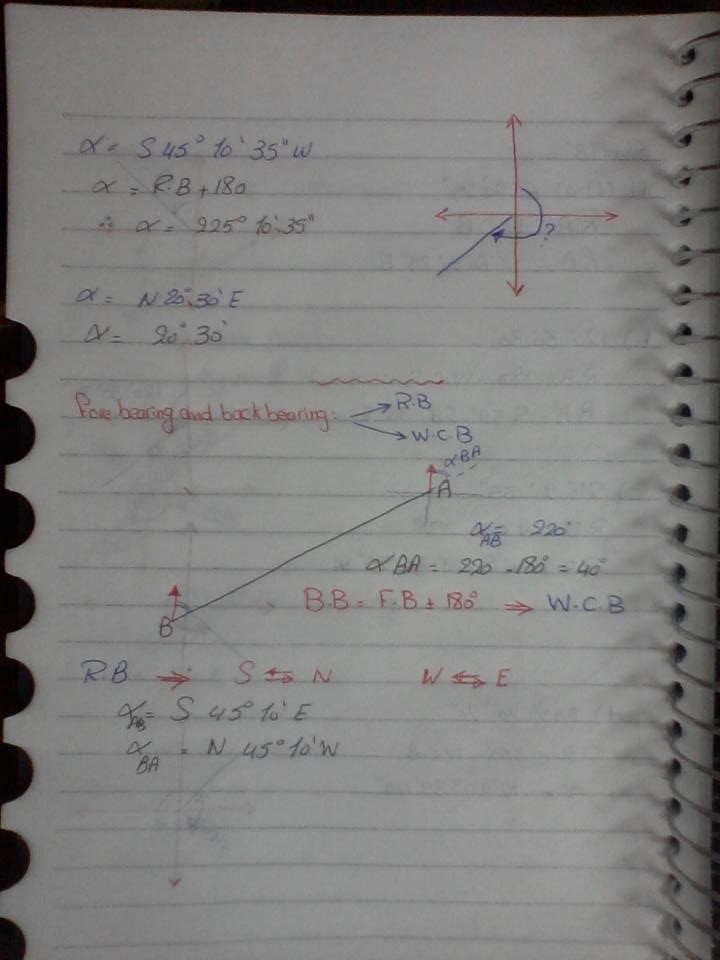 α = S 45° 10' 35" W
α = R.B + 180
∴ α = 225° 10' 35"
?
α = N 20° 30' E
α = 20° 30'
Fore bearing and back bearing:
R.B
W.C.B
α BA
A
α AB = 220°
α BA = 220 - 180° = 40°
B.B = F.B ± 180° ⇒ W.C.B
B
R.B ⇒ S ⇔ N W ⇔ E
α AB = S 45° 10' E
α BA = N 45° 10' W